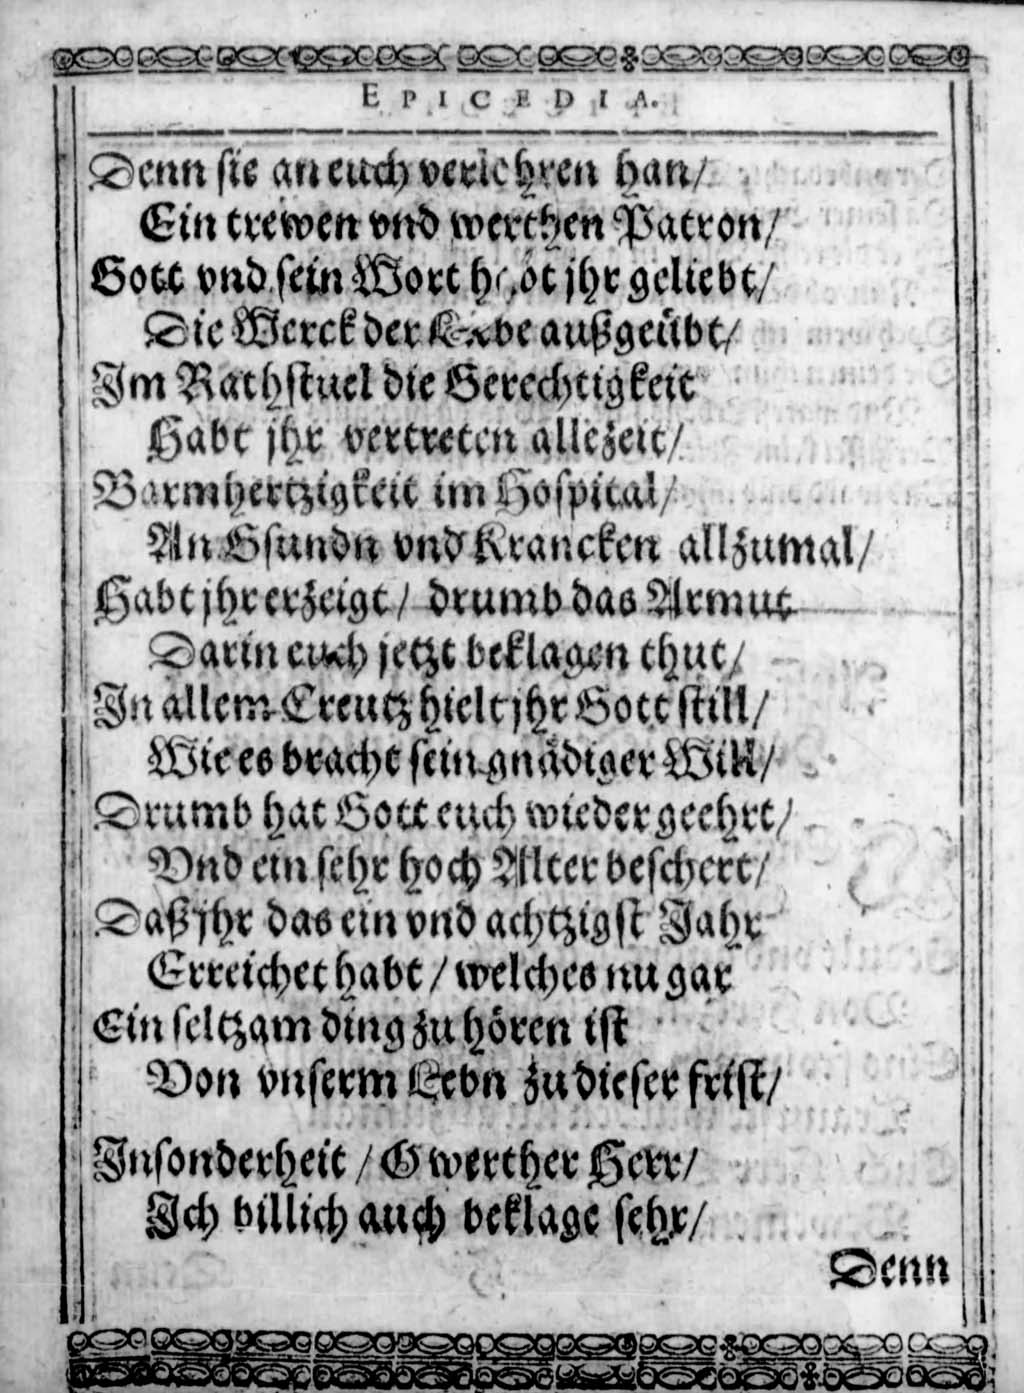 EPICEDIA.
Denn sie an euch verlohren han/
Ein trewen vnd werthen Patron/
Gott vnd sein Wort habt jhr geliebt/
Die Werck der Liebe außgeübt/
Im Rathstuel die Gerechtigkeit
Habt jhr vertreten allezeit/
Barmhertzigkeit im Hospital/
An Gsundn vnd Krancken allzumal/
Habt jhr erzeigt / drumb das Armut
Darin euch jetzt beklagen thut/
In allem Creutz hielt jhr Gott still/
Wie es bracht sein gnädiger Will/
Drumb hat Gott euch wieder geehrt/
Vnd ein sehr hoch Alter beschert/
Daß jhr das ein vnd achtzigst Jahr
Erreichet habt / welches nu gar
Ein seltzam ding zu hören ist
Von vnserm Lebn zu dieser frist/
Insonderheit / O werther Herr/
Ich billich auch beklage sehr/
Denn